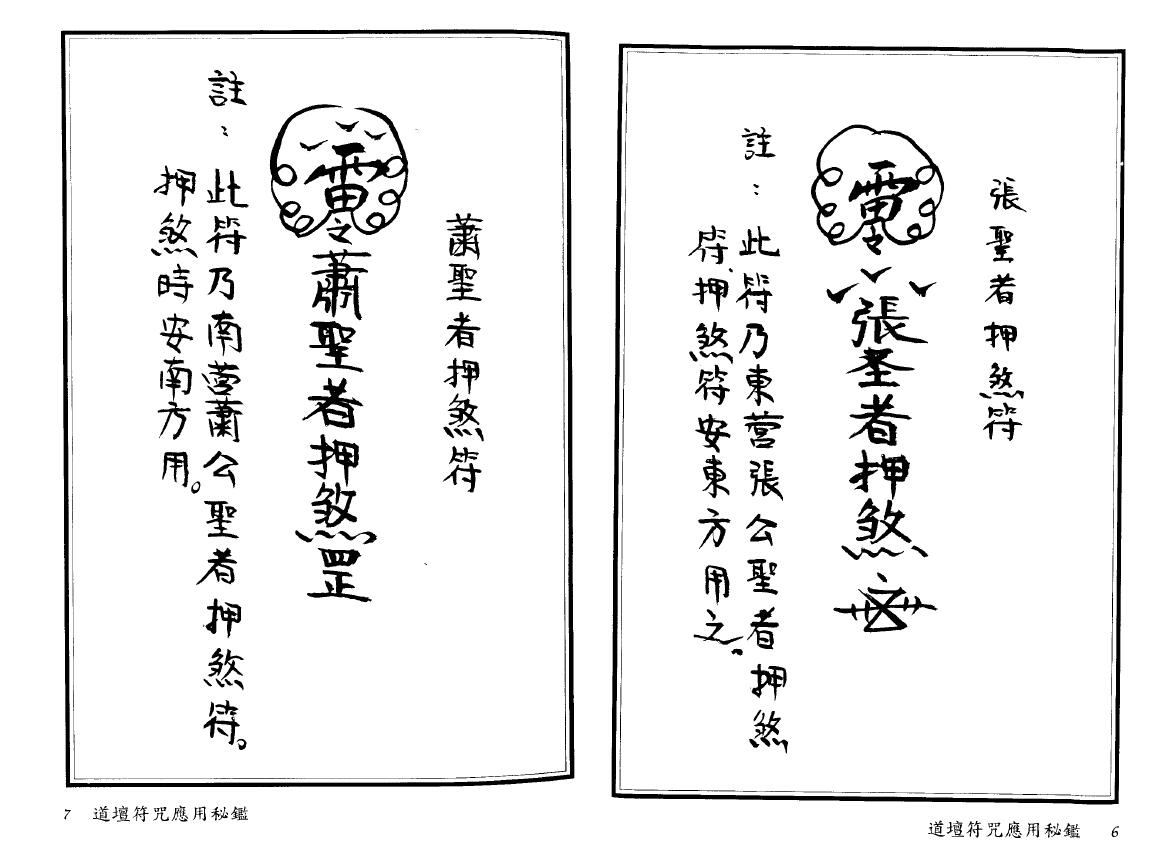 張聖者押煞符
雷令
張圣者押煞
註：此符乃東營張公聖者押煞
符，押煞符安東方用之。
道壇符咒應用秘鑑 6
蕭聖者押煞符
雷令蕭聖者押煞罡
註：此符乃南營蕭公聖者押煞符。
押煞時安南方用。
7 道壇符咒應用秘鑑